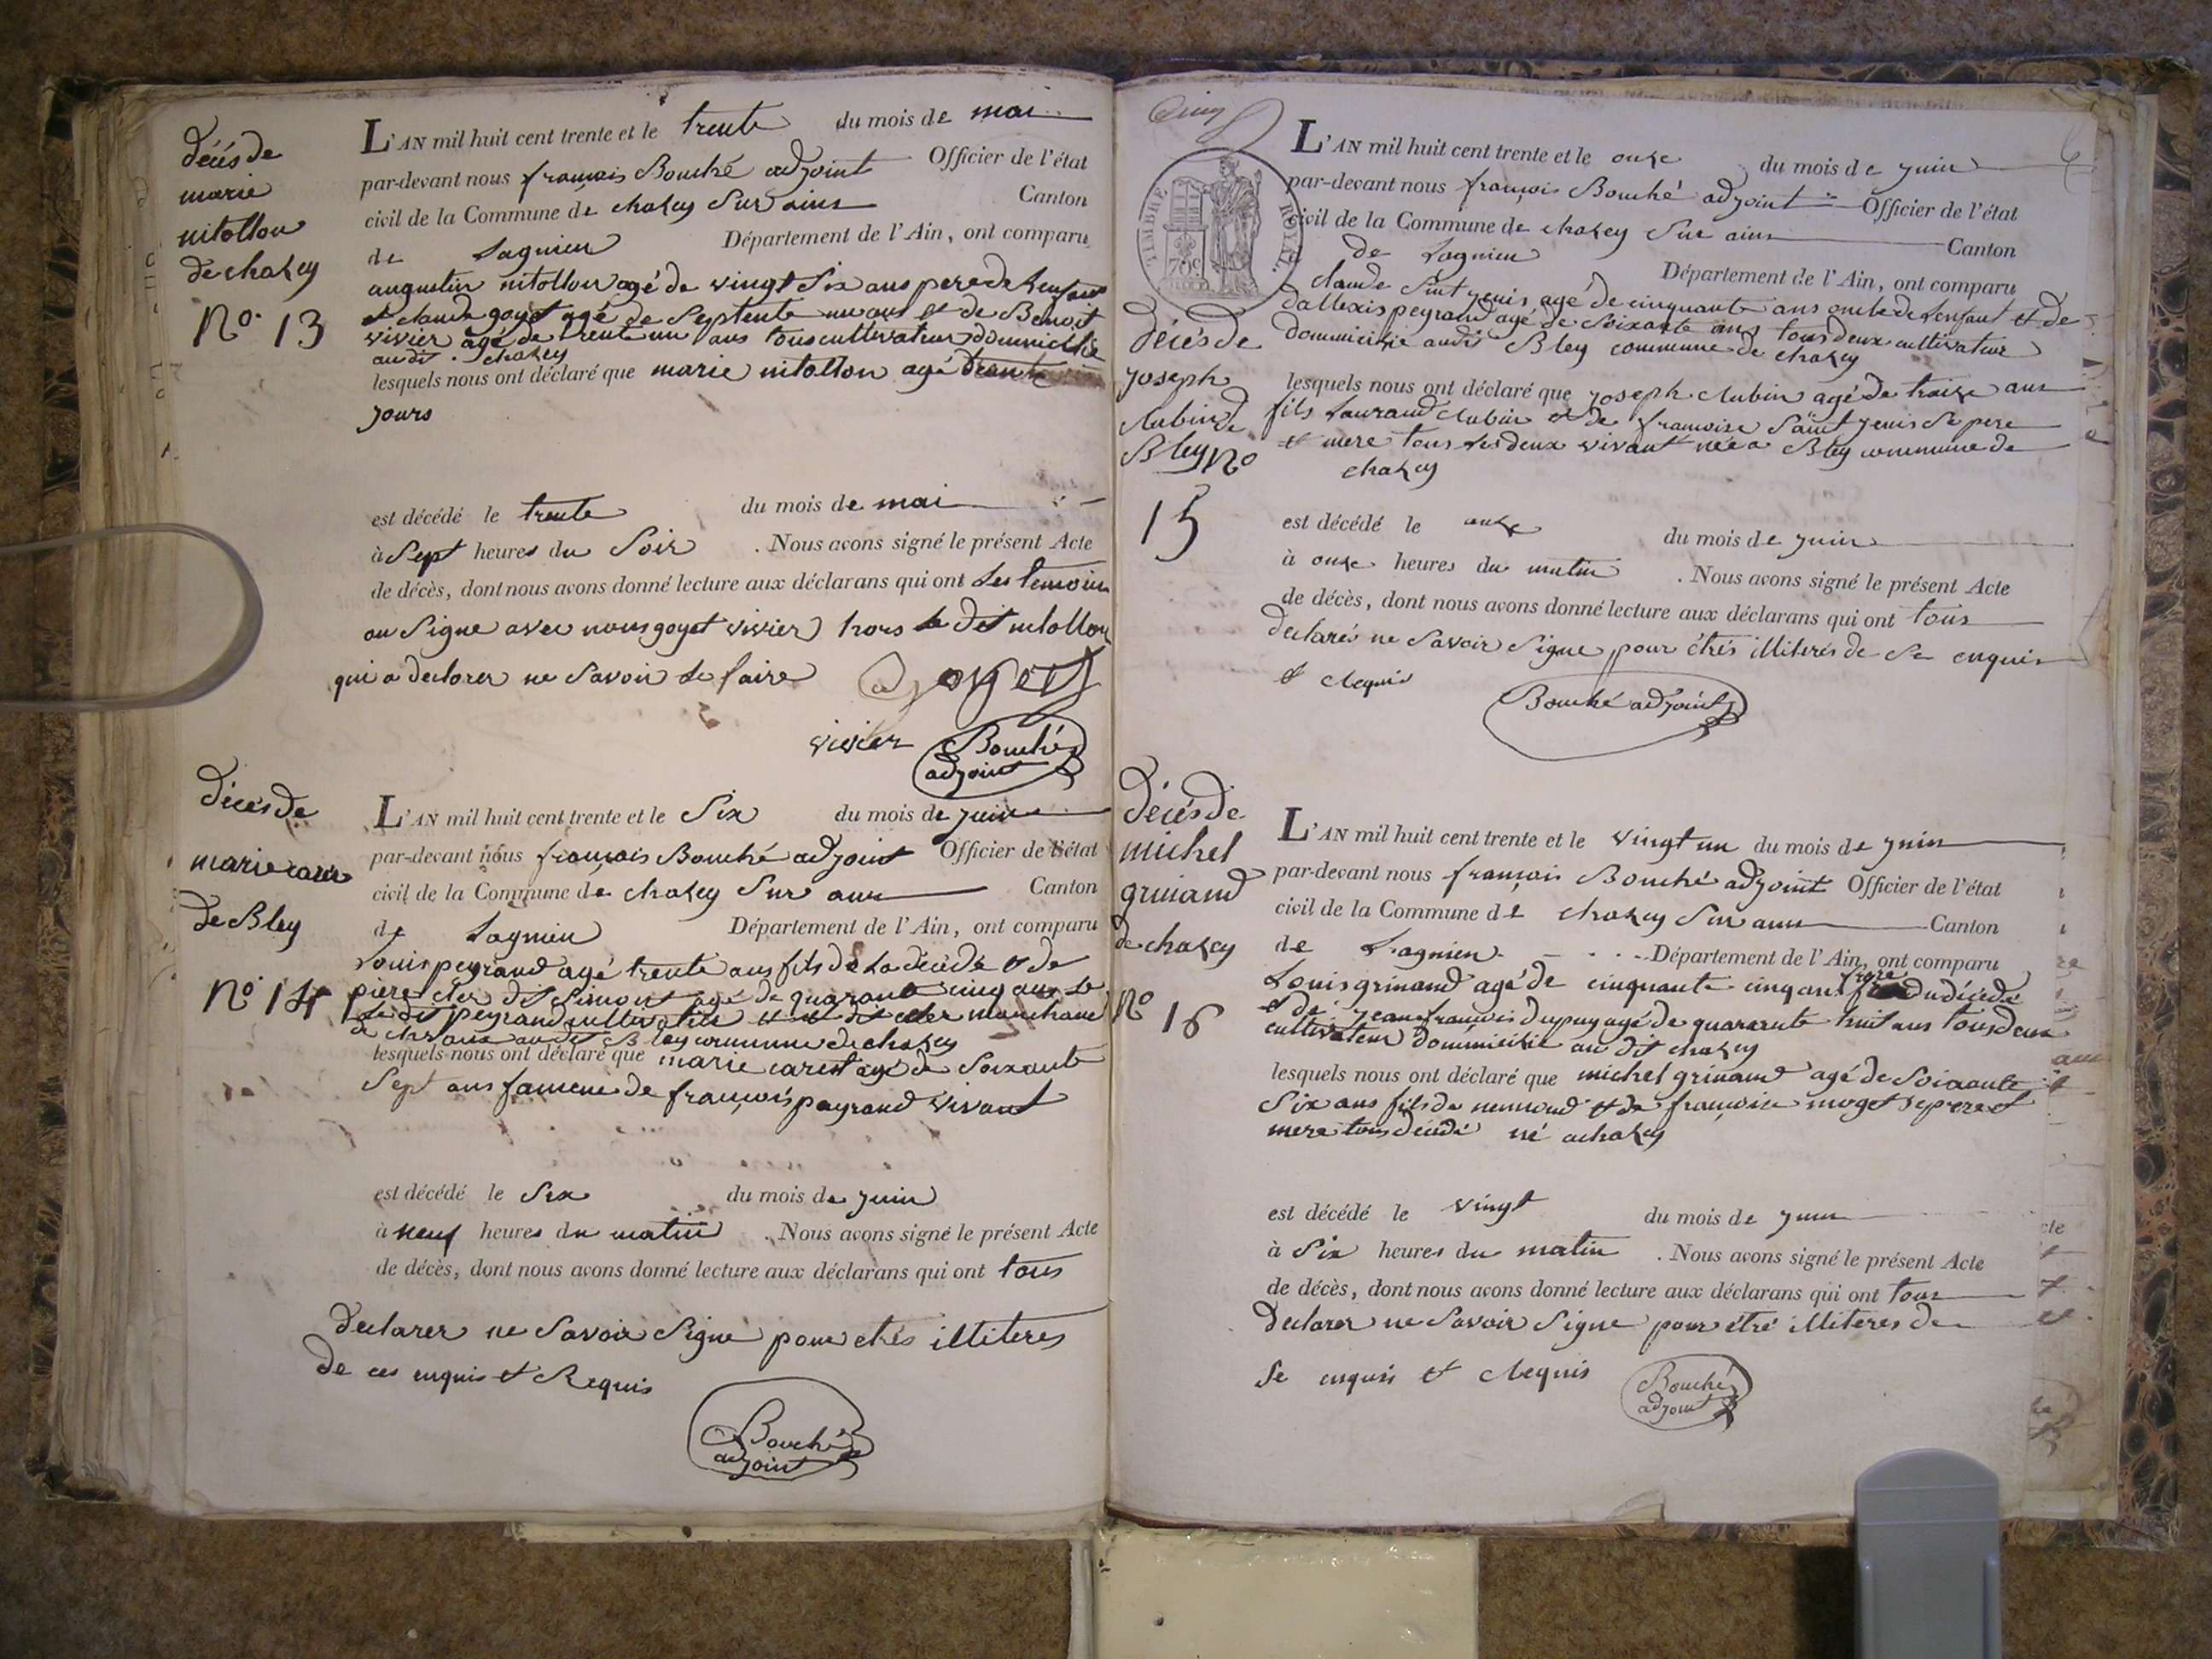 décés de
marie
nitollon
de chazey
No. 13
L'AN mil huit cent trente et le trente du mois de mai
par-devant nous françois Bouché adjoint Officier de l'état
civil de la Commune de chazey Sur ains Canton
de Lagnieu Département de l'Ain, ont comparu
augustin nitollon agé de vingt Six ans pere de Lenfant
et claude goyet agé de Septente un ans et de Benoit
vivier agé de trente un ans tous cultivateur domicilié
audit chazey
lesquels nous ont déclaré que marie nitollon agé trente
jours
est décédé le trente du mois de mai
à Sept heures du Soir . Nous avons signé le présent Acte
de décès, dont nous avons donné lecture aux déclarans qui ont Les temoin
on Signe avec nous goyet vivier hors le dit nitollon
qui a declarer ne Savoir Le faire goyet
vivier Bouché
adjoint
décés de
marie
de Bley
No 14
L'AN mil huit cent trente et le Six du mois de juin
par-devant nous françois Bouché adjoint Officier de l'état
civil de la Commune de chazey Sur ain Canton
de Lagnieu Département de l'Ain, ont comparu
Louis peyrand agé trente ans fils de La décédé et de
piere cler dit Simon agé de quarante cinq ans le
dit peyrand cultivateur et le dit cler marchand
de audit Bley commune de chazey
lesquels nous ont déclaré que marie caret agé de Soixante
Sept ans fameme de françois payrand vivant
est décédé le Six du mois de juin
à neuf heures du matin . Nous avons signé le présent Acte
de décès, dont nous avons donné lecture aux déclarans qui ont tous
declarer ne Savoir Signe pour etrés illiteres
de ces enquis et Requis
Bouché
adjoint
TIMBRE ROYAL
70c
décés de
joseph
Aubin de
Bley No
15
L'AN mil huit cent trente et le onze du mois de juin
par-devant nous françois Bouché adjoint Officier de l'état
civil de la Commune de chazey Sur ains Canton
de Lagnieu Département de l'Ain, ont comparu
claude Sint jenis agé de cinquante ans oncle de Lenfant et de
dallexis peyrand agé de Soixante ans tous deux cultivateur
domicilié audit Bley commune de chazey
lesquels nous ont déclaré que joseph Aubin agé de traize ans
fils Laurand Aubin et de framoise Saint jenis Se pere
et mere tous Les deux vivant née a Bley commune de
chazey
est décédé le onze du mois de juin
à onze heures du matin . Nous avons signé le présent Acte
de décès, dont nous avons donné lecture aux déclarans qui ont tous
declarés ne Savoir Signe pour étrés illiterés de Se enquis
et Requis
Bouché adjoint
décés de
michel
grinand
de chazey
No 16
L'AN mil huit cent trente et le vingt un du mois de juin
par-devant nous françois Bouché adjoint Officier de l'état
civil de la Commune de chazey Sur ains Canton
de Lagnieu Département de l'Ain, ont comparu
Louis grinand agé de cinquante cinq ans frere du décédé
et de jean françois dupuy agé de quararute huit ans tous deux
cultivateur domicilié au dit chazey
lesquels nous ont déclaré que michel grinand agé de Soixante
Six ans fils de et de françoise moget Se pere et
mere tous décédé né achazey
est décédé le vingt du mois de juin
à Six heures du matin . Nous avons signé le présent Acte
de décès, dont nous avons donné lecture aux déclarans qui ont tous
declarer ne Savoir Signe pour étré illiteres de
Se enquis et Requis
Bouché
adjoint